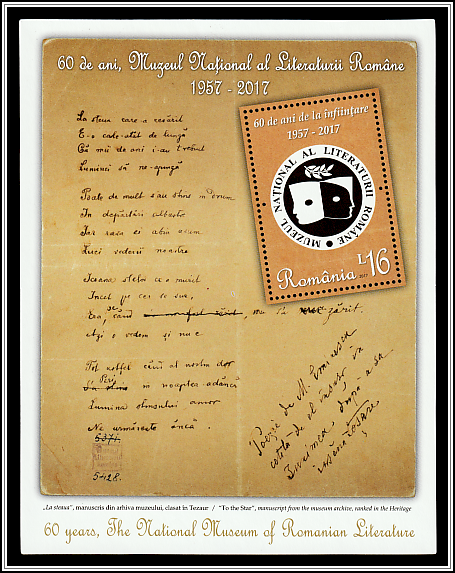 60 de ani, Muzeul Național al Literaturii Române
1957 - 2017
60 de ani de la înființare
1957 - 2017
MUZEUL NAȚIONAL AL LITERATURII ROMÂNE
L16
România 2017
La steua care-a resărit
E-o cale-atât de lungă
Că mii de ani i-au trebuit
Luminii să ne-ajungă
Poate de mult s'au stins în drum
În depărtări albastre
Iar raza ei abia acum
Luci vederii noastre
Icoana stelei ce-a murit
Încet pe cer se sue,
Era, când
nu s'a zărit.
Azi o vedem și nu e
Tot astfel când al nostru dor
Peri în noaptea-adâncă
Lumina stinsului amor
Ne urmărește încă.
5371.
5428.
Poezie de M. Eminescu
scrisă de el însuși în
Junimea după a sa
însănătoșare
„La steaua", manuscris din arhiva muzeului, clasat în Tezaur / "To the Star", manuscript from the museum archive, ranked in the Heritage
60 years, The National Museum of Romanian Literature